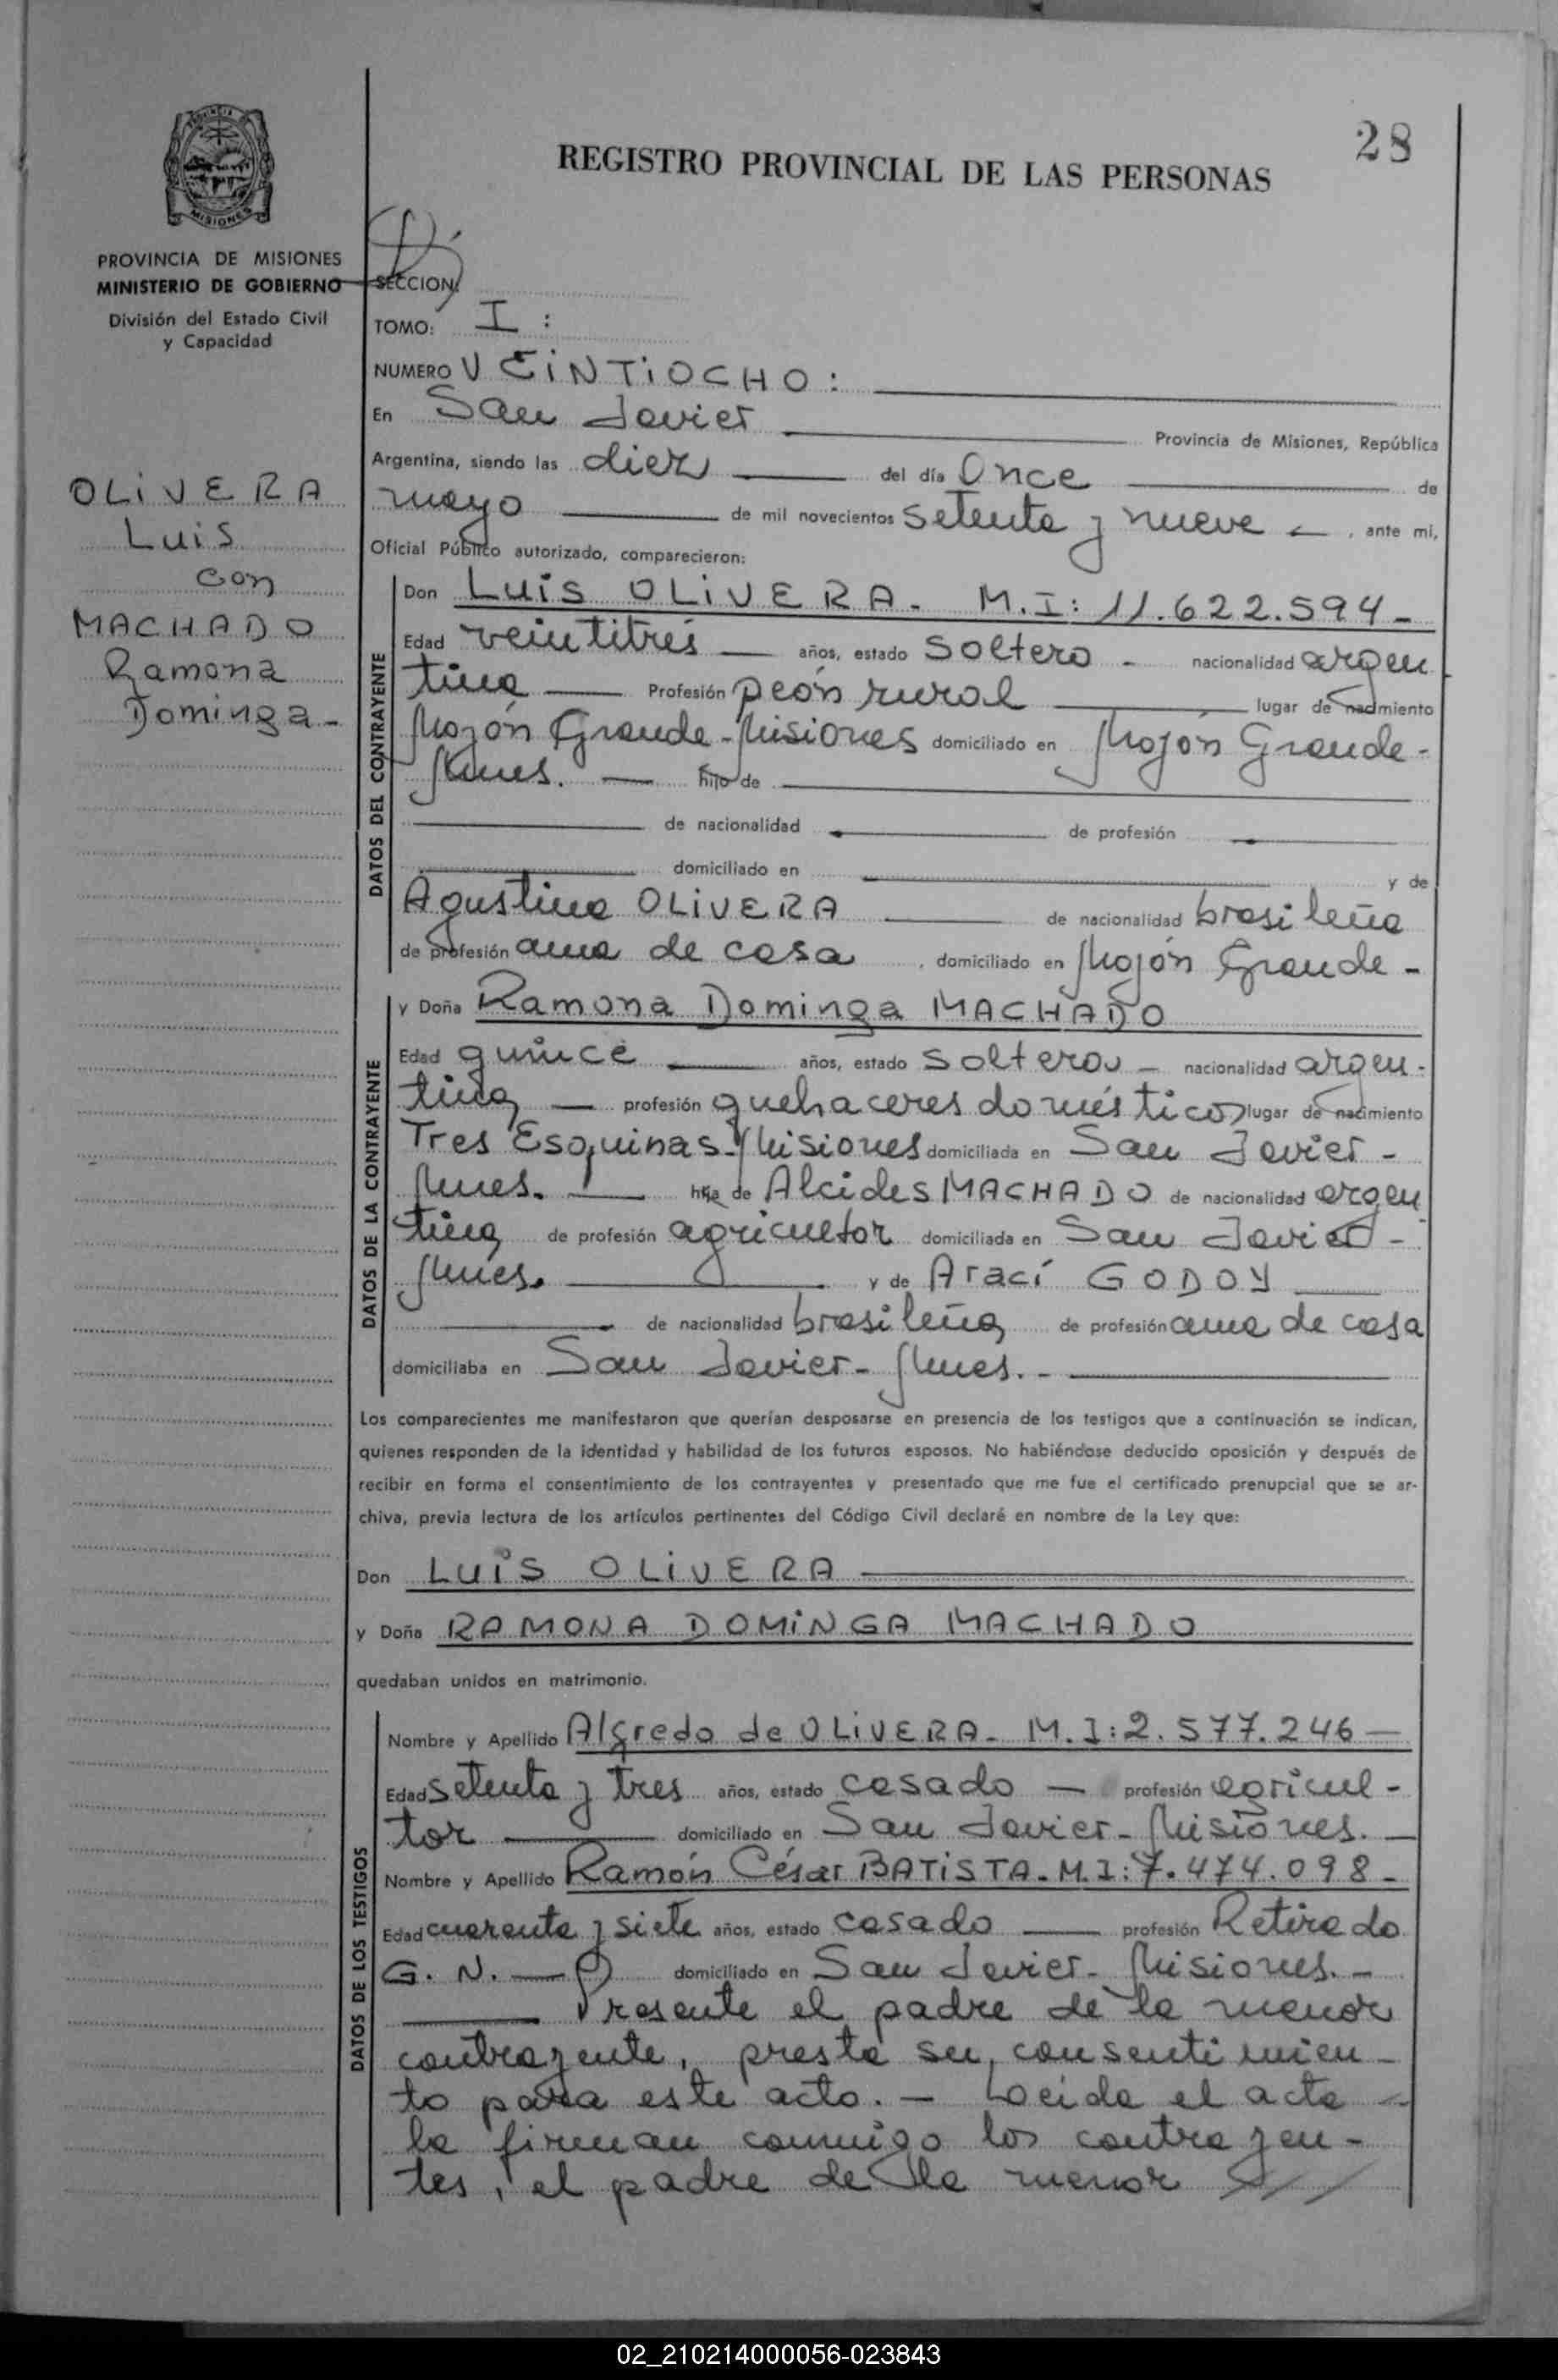 28
REGISTRO PROVINCIAL DE LAS PERSONAS
MISIONES
PROVINCIA DE MISIONES
MINISTERIO DE GOBIERNO
División del Estado Civil
y Capacidad
SECCION:
TOMO: I :
NUMERO VEINTIOCHO :
En San Javier Provincia de Misiones, República
Argentina, siendo las diez del día Once de
mayo de mil novecientos setenta y nueve , ante mi,
Oficial Público autorizado, comparecieron:
OLIVERA
Luis
con
MACHADO
Ramona
Dominga -
DATOS DEL CONTRAYENTE
Don Luis OLIVERA - M.I: 11.622.594 -
Edad veintitrés años, estado soltero - nacionalidad argen
tina Profesión peón rural lugar de nacimiento
Mojón Grande - Misiones domiciliado en Mojón Grande -
Mnes. hijo de
de nacionalidad de profesión
domiciliado en y de
Agustina OLIVERA de nacionalidad brasileña
de profesión ama de casa , domiciliado en Mojón Grande -
DATOS DE LA CONTRAYENTE
y Doña Ramona Dominga MACHADO
Edad quince años, estado soltera - nacionalidad argen -
tina profesión quehaceres domésticos lugar de nacimiento
Tres Esquinas - Misiones domiciliada en San Javier -
Mnes. hija de Alcides MACHADO de nacionalidad argen
tina de profesión agricultor domiciliada en San Javier -
Mnes. y de Arací GODOY
de nacionalidad brasileña de profesión ama de casa
domiciliaba en San Javier - Mnes. -
Los comparecientes me manifestaron que querían desposarse en presencia de los testigos que a continuación se indican,
quienes responden de la identidad y habilidad de los futuros esposos. No habiéndose deducido oposición y después de
recibir en forma el consentimiento de los contrayentes y presentado que me fue el certificado prenupcial que se ar-
chiva, previa lectura de los artículos pertinentes del Código Civil declaré en nombre de la Ley que:
Don LUIS OLIVERA
y Doña RAMONA DOMINGA MACHADO
quedaban unidos en matrimonio.
DATOS DE LOS TESTIGOS
Nombre y Apellido Alfredo de OLIVERA - M.I: 2.577.246
Edad setenta y tres años, estado casado profesión agricul -
tor domiciliado en San Javier - Misiones.
Nombre y Apellido Ramón César BATISTA - M.I: 7.474.098 -
Edad cuarenta y siete años, estado casado profesión Retirado
G. N. domiciliado en San Javier - Misiones. -
Presente el padre de la menor
contrayente, presta su consentimien -
to para este acto. - Leída el acta
la firman conmigo los contrayen -
tes, el padre de la menor //
02_210214000056-023843